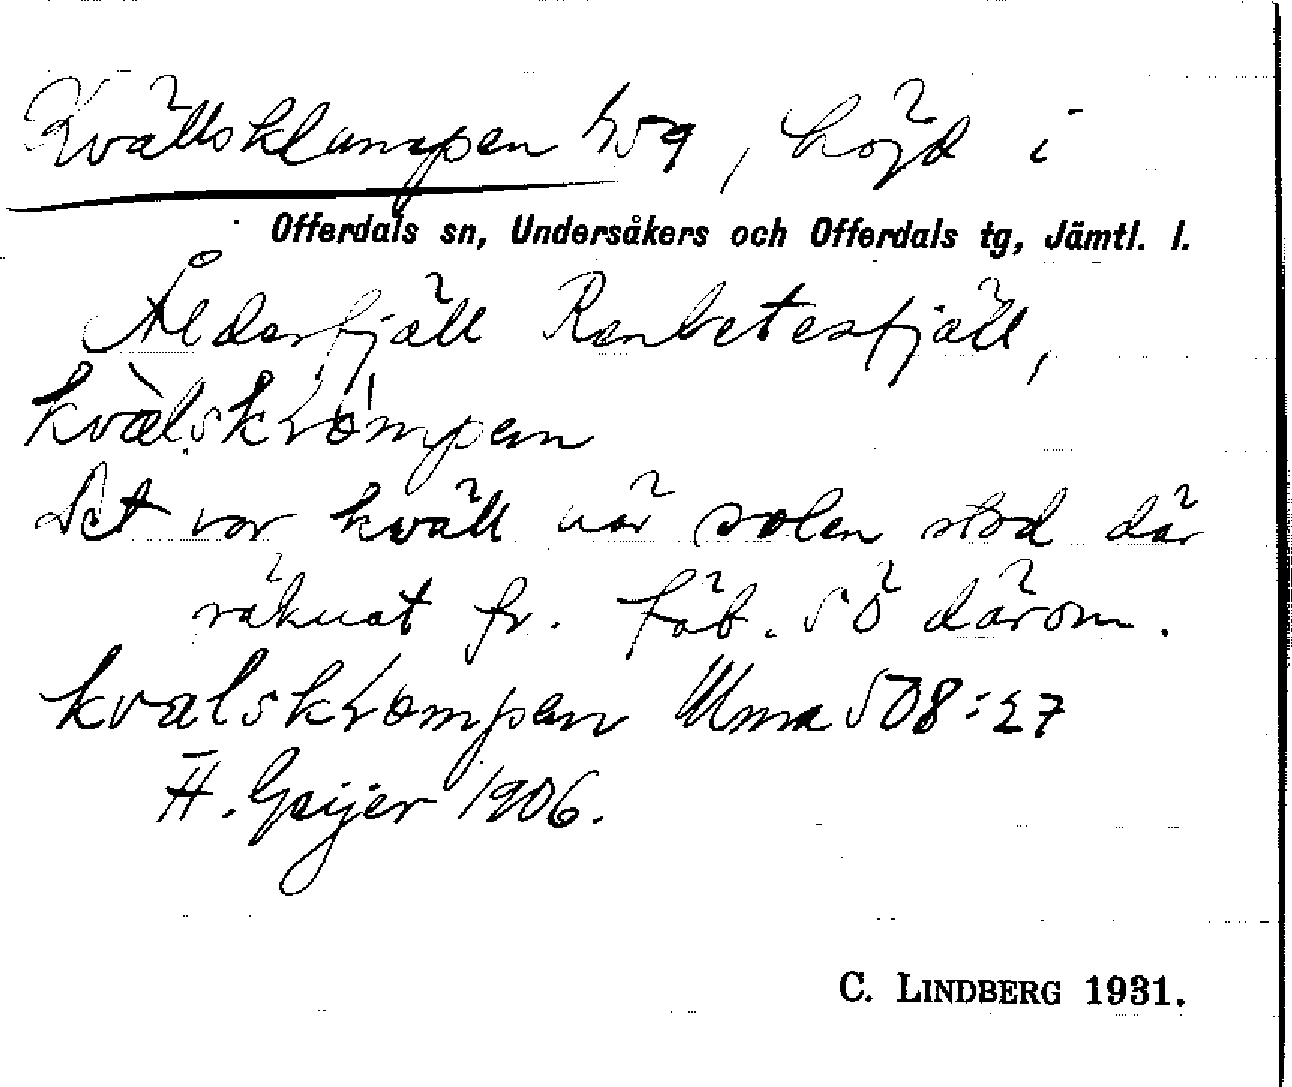 Kvällsklumpen 759, höjd i
Offerdals sn, Undersåkers och Offerdals tg, Jämtl. l.
Ålderfjäll Renbetesfjäll,
kvälskLömpen
Det var kväll när solen stod där
räknat fr. fäb. SÖ därom.
kvalskLompen Uma 508:27
H. Geijer 1906.
C. LINDBERG 1931.